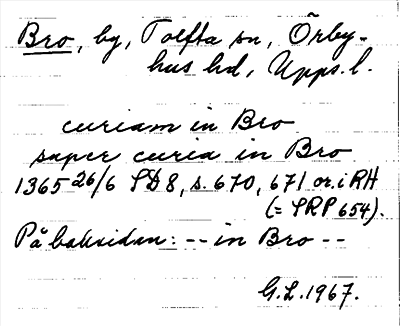 Bro, by, Tolfta sn, Örby-
hus hd, Upps. l.
curiam in Bro
super curia in Bro
1365 26/6 SD 8, s. 670, 671 or. i RH
(= SRP 654).
På baksidan: -- in Bro --
G.L. 1967.